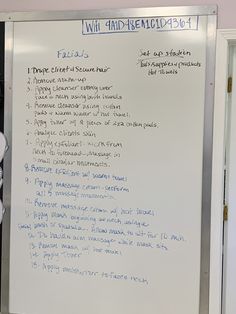 Wifi 9A1D48EA1C1D9364
Facials
Set up station
Tools, supplies & products
Hot Towels
1. Drape client & secure hair
2. Remove make-up
3. Apply cleanser evenly over
face & neck using both hands
4. Remove cleanser using cotton
pads & warm water or hot towel.
5. Apply toner w/ 8 pieces of 2x2 cotton pads.
6. Analyze clients skin
7. Apply exfoliant - work from
neck to forehead - massage in
small circular movements.
8. Remove exfoliant w/ warm towel
9. Apply massage cream - perform
all 5 massage movements
10. Remove massage cream w/ hot towel
11. Apply mask beginning at neck using
brush or spatula. Allow mask to sit for 10 min.
12. Do hand & arm massage while mask sits
13. Remove mask w/ hot towel
14. Apply Toner
15. Apply moisturizer to face & neck